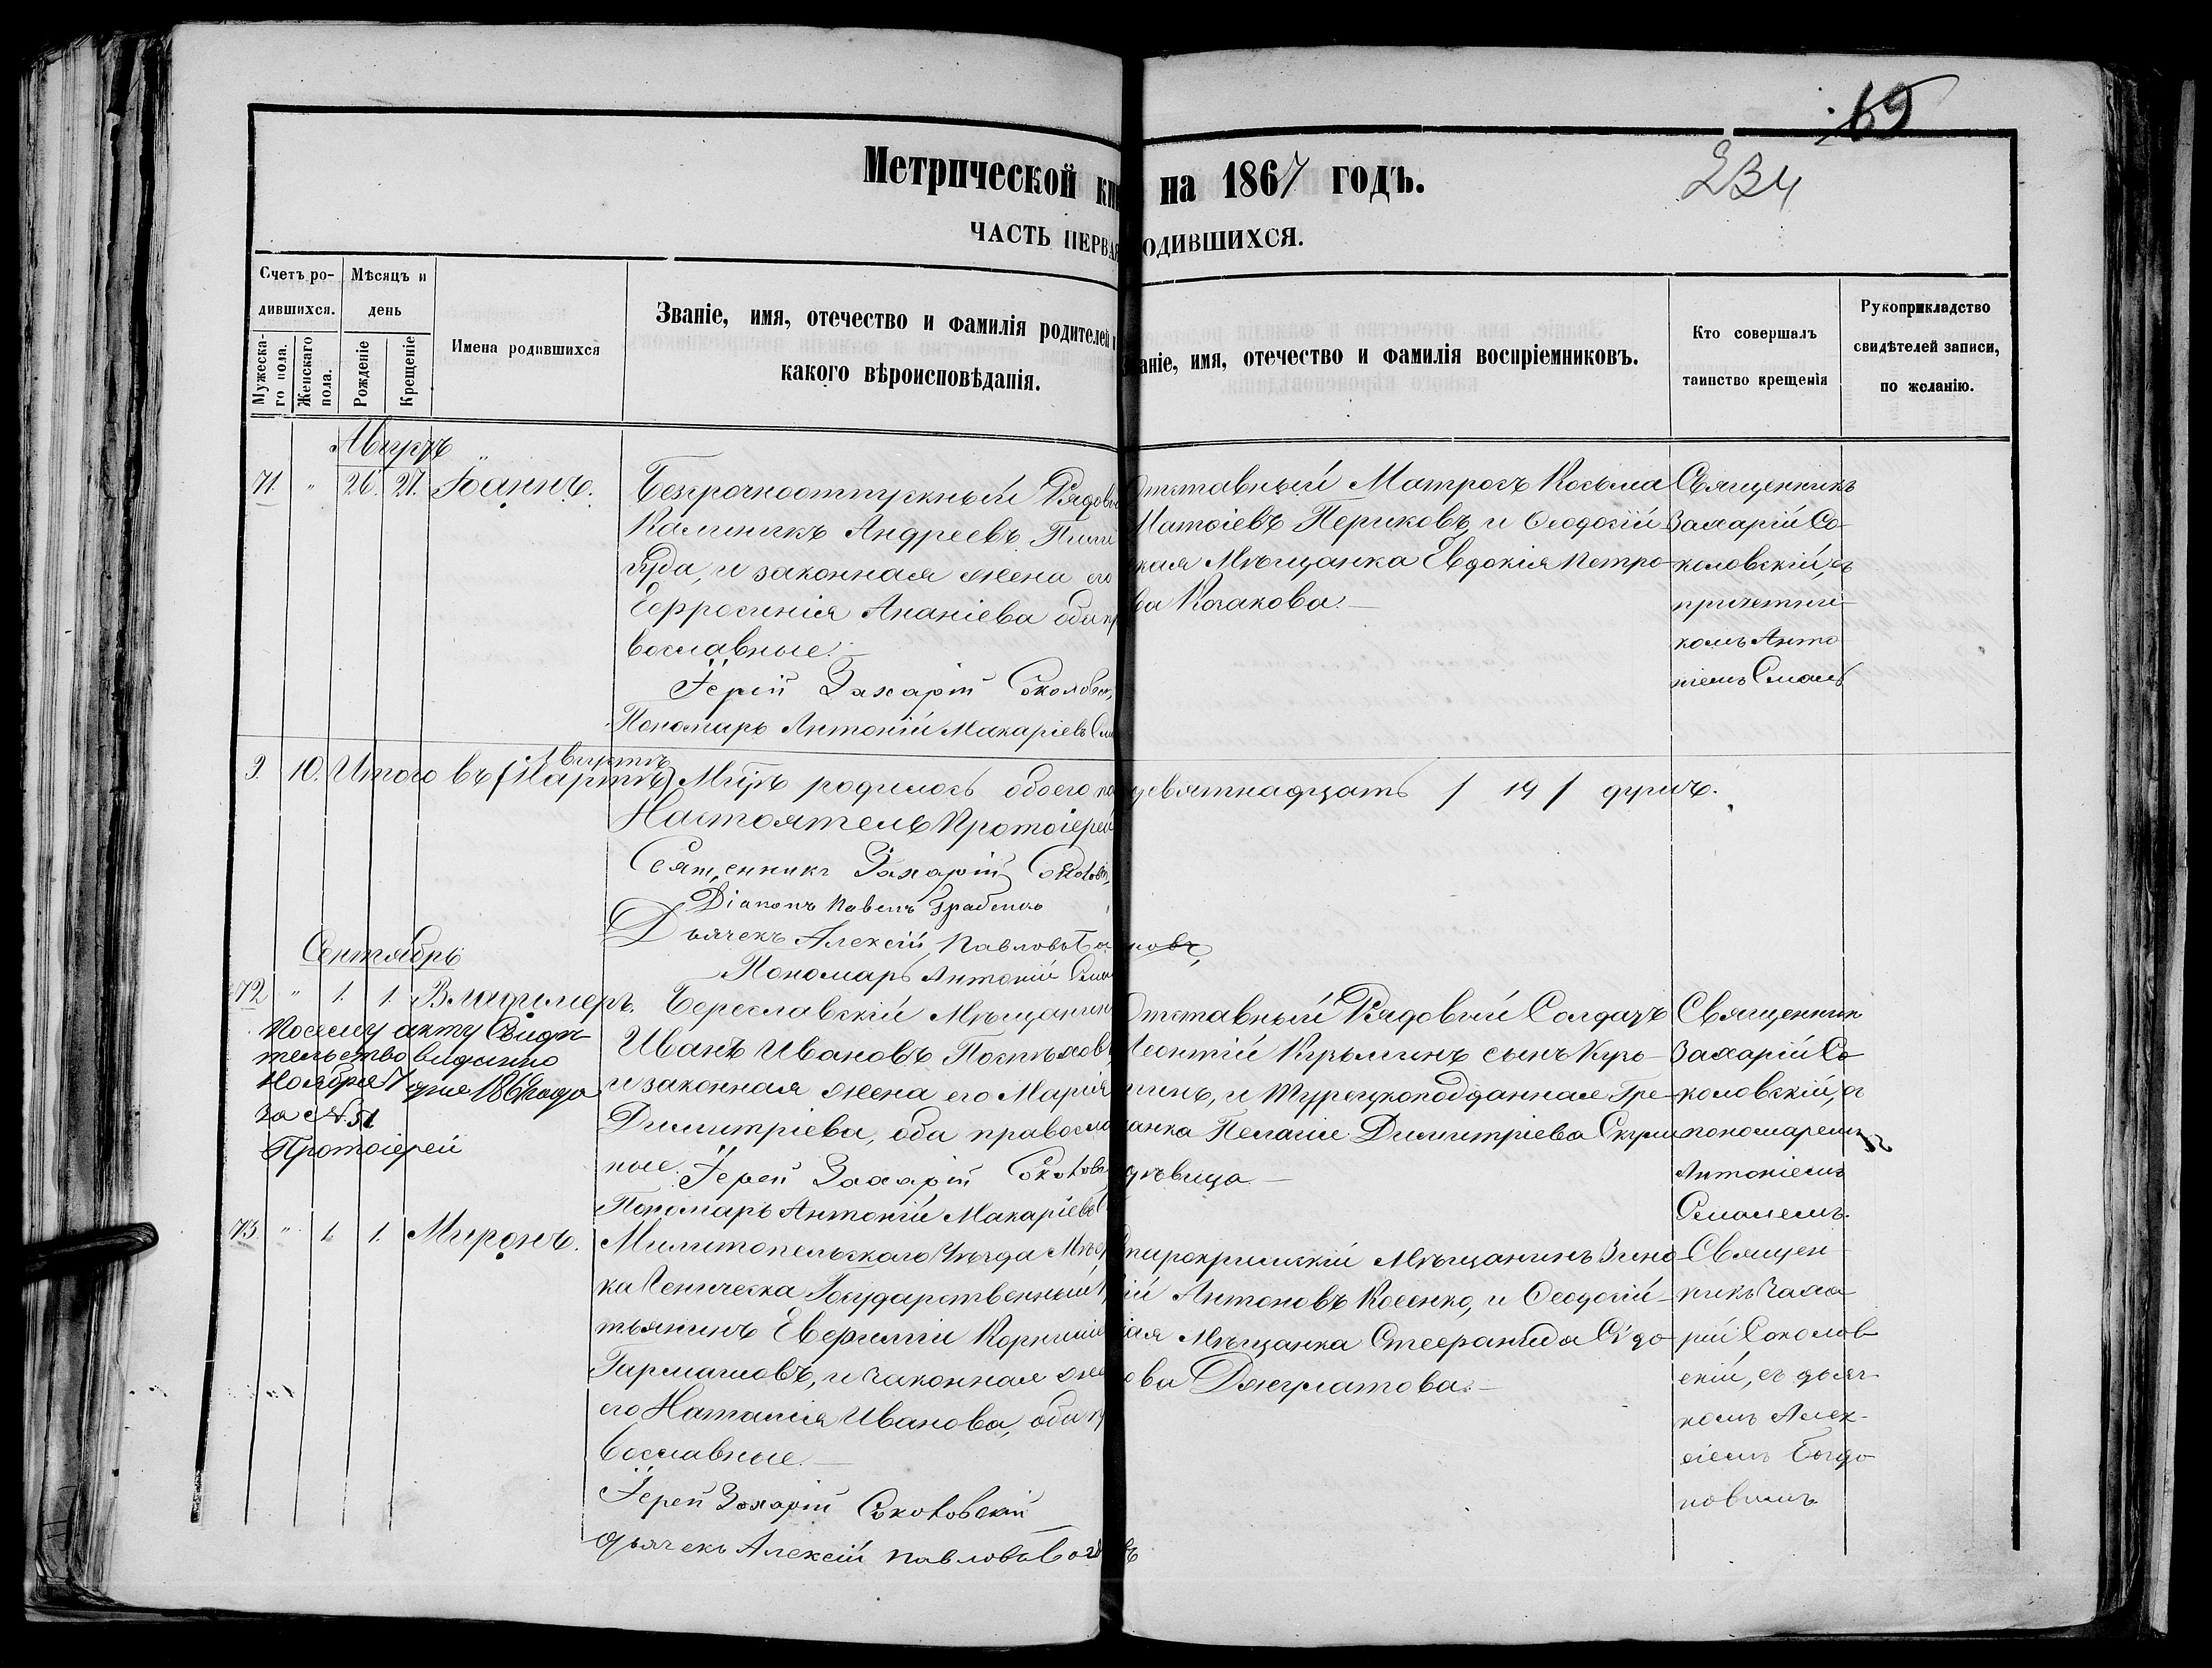 69
234
Метрической кни на 1867 годъ.
ЧАСТЬ ПЕРВАЯ ОДИВШИХСЯ.
Счетъ ро-
дившихся.
Мужеска-
го пола.
Женскаго
пола.
Мѣсяцъ и
день
Рожденіе
Крещеніе
Имена родившихся
Званіе, имя, отечество и фамилія родителей и
какого вѣроисповѣданія.
аніе, имя, отечество и фамилія воспріемниковъ.
Кто совершалъ
таинство крещенія
Рукоприкладство
свидѣтелей записи,
по желанію.
Августъ
71. " 26. 27. Іоаннъ.
Безсрочноотпускный Рядовы
Калиникъ Андреевъ
и законная жена его
Ефросинія Ананіева оба пр
вославные.
Іерей Захарій Соколовск
Пономарь Антоній Макаріевъ См
Отставный Матросъ Косьма
Матѳіевъ Периковъ, и Ѳеодосій
ская Мѣщанка Евдокія Петро-
ва Козакова.
Священникъ
Захарій Со-
коловскій, съ
причетни-
комъ Анто
ніемъ
9. 10. Итого въ (Мартѣ) Августѣ М-цѣ родилось обоего по девятнадцать / 19 / душъ.
Настоятель Протоіерей
Священникъ Захарій Соколовскі
Діаконъ Павелъ Грабенко
Дьячекъ Алексій Павловъ Бо новъ
Пономарь Антоній Смо
Сентябрь
72 " 1. 1. Владимеръ.
По сему акту Свидѣ-
тельство выдано
Ноября 7 дня 1868 года
за №. 51
Протоіерей
Береславскій Мѣщанин
Иванъ Ивановъ Поспѣлов
и законная жена его Марія
Димитріева, оба правосла
ные. Іерей Захарій Соколовск
Пономарь Антоній Макаріевъ
Отставный Рядовый Солдатъ
Леонтій Кузьминъ сынъ Кузь-
минъ, и Турецкоподданная Гре-
чанка Пелагія Димитріева
дѣвица.
Священник
Захарій Со
коловскій, съ
пономаремъ
Антоніемъ
73. " 1. 1. Миронъ.
Мелитопельскаго Уѣзда Мѣс
ка Геническа Государственный К
тьянинъ Евфимій Корниліе
Гармашовъ, и законная жен
его Наталія Иванова, оба пр
вославные.
Іерей Захарій Соколовскій
Дьячекъ Алексій Павловъ Богд въ
Старокрымскій Мѣщанинъ Зино
ій Антоновъ Косенко, и Ѳеодосій-
ская Мѣщанка Стефанида Сідо-
рова
Священ-
никъ Заха-
рій Соколов-
скій, съ дьяч-
комъ Алек-
сіемъ Богда
новымъ